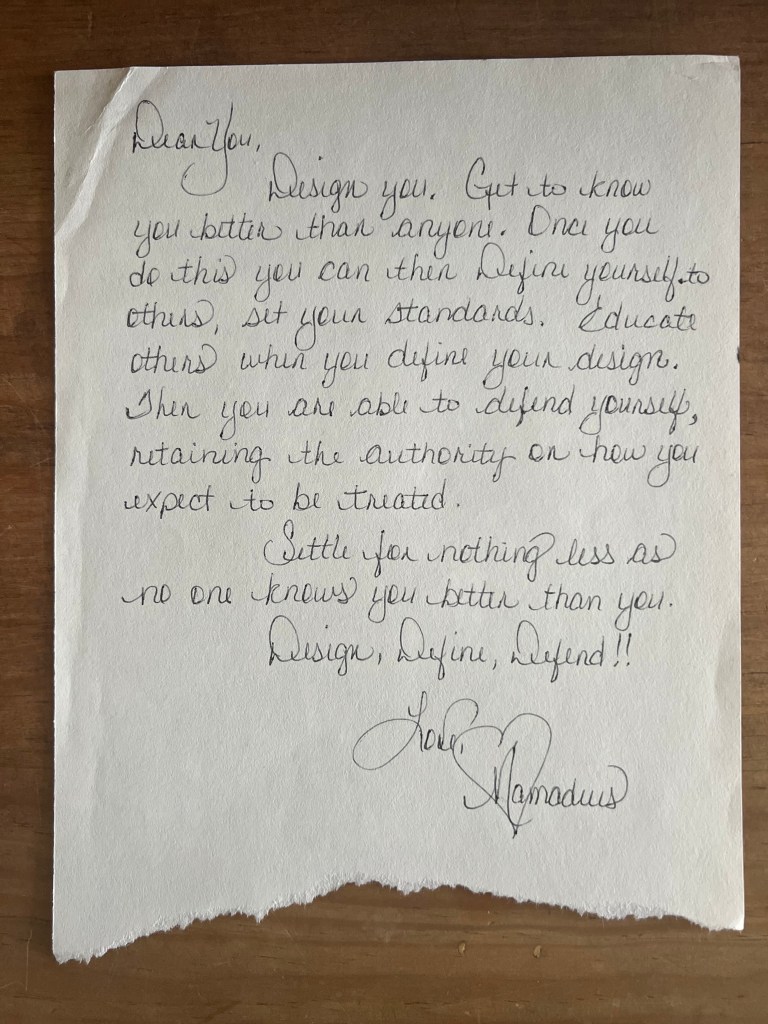 Dear You,
Design you. Get to know
you better than anyone. Once you
do this you can then Define yourself to
others, set your standards. Educate
others when you define your design.
Then you are able to defend yourself,
retaining the authority on how you
expect to be treated.
Settle for nothing less as
no one knows you better than you.
Design, Define, Defend!!
Love,